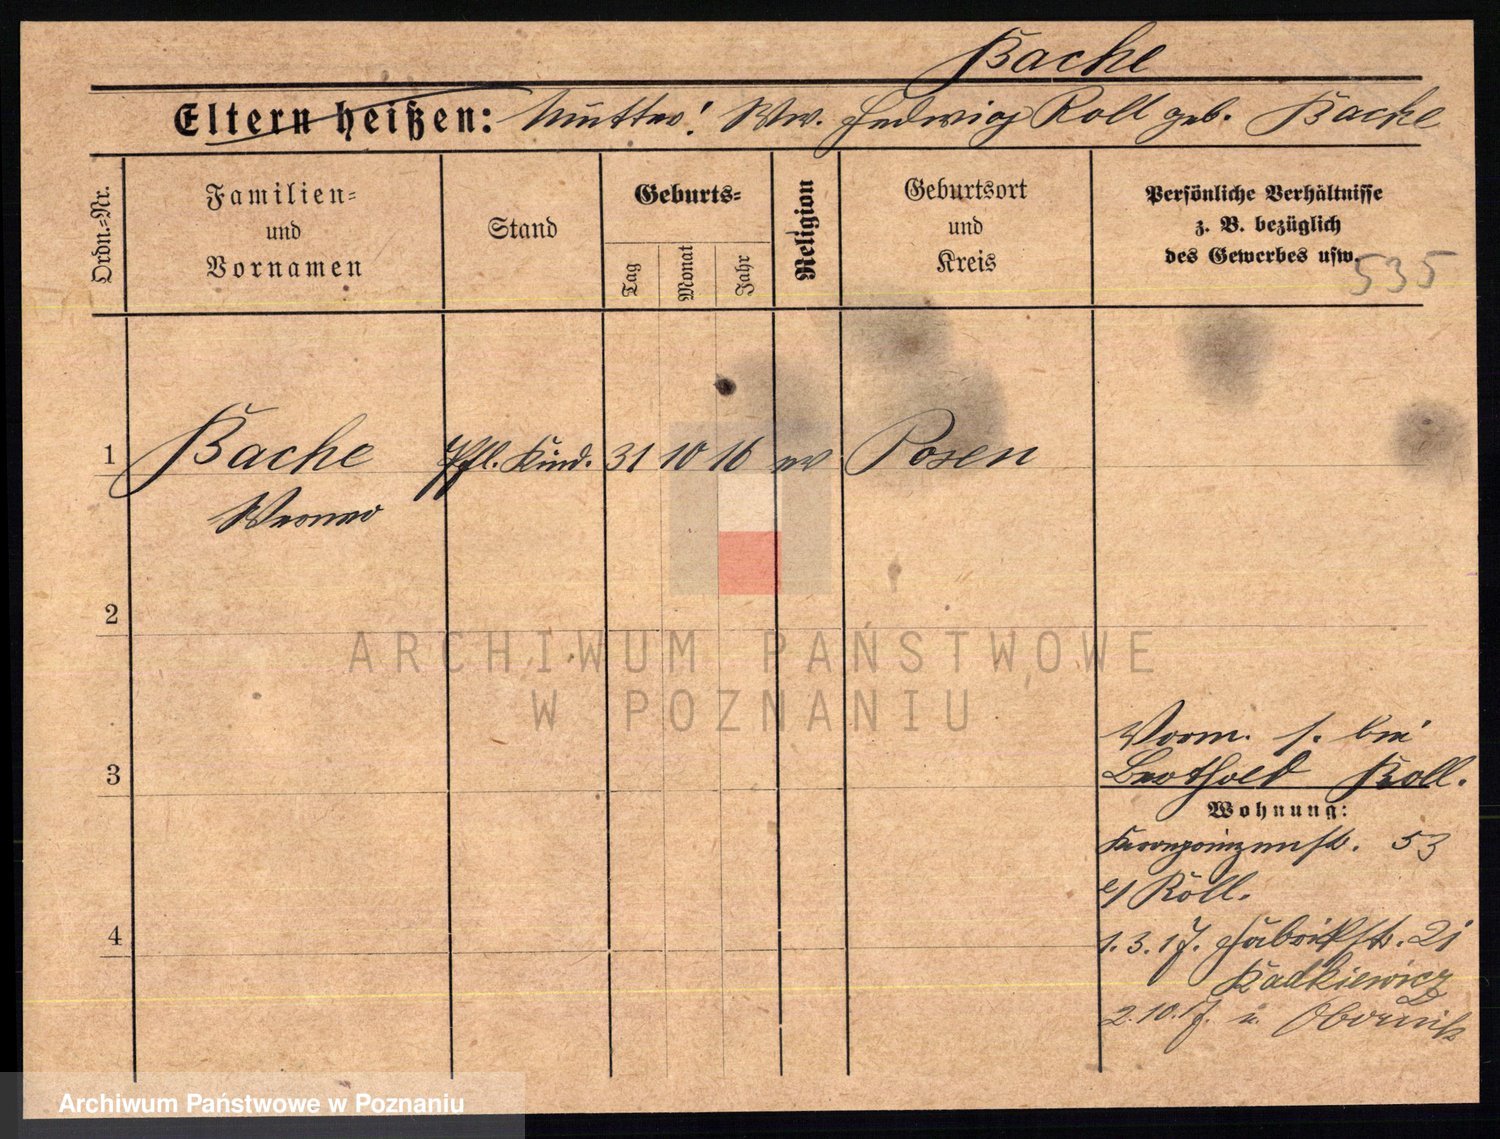 Bache
Eltern heißen: Mutter: Ww. Hedwig Roll geb. Bache
Ordn.=Nr.
Familien=
und
Vornamen
Stand
Geburts=
Tag
Monat
Jahr
Religion
Geburtsort
und
Kreis
Persönliche Verhältnisse
z. B. bezüglich
des Gewerbes usw.
535
1 Bache Pfl. Kind. 31 10 16 ev Posen
Werner
2
3
4
Vorm. s. bei
Berthold Roll.
Wohnung:
Kronprinzenstr. 53
Roll.
1. 3. 17. Fabrikstr. 21
Radkiewicz
2. 10. 17. n. Obornik
ARCHIWUM PAŃSTWOWE
W POZNANIU
Archiwum Państwowe w Poznaniu